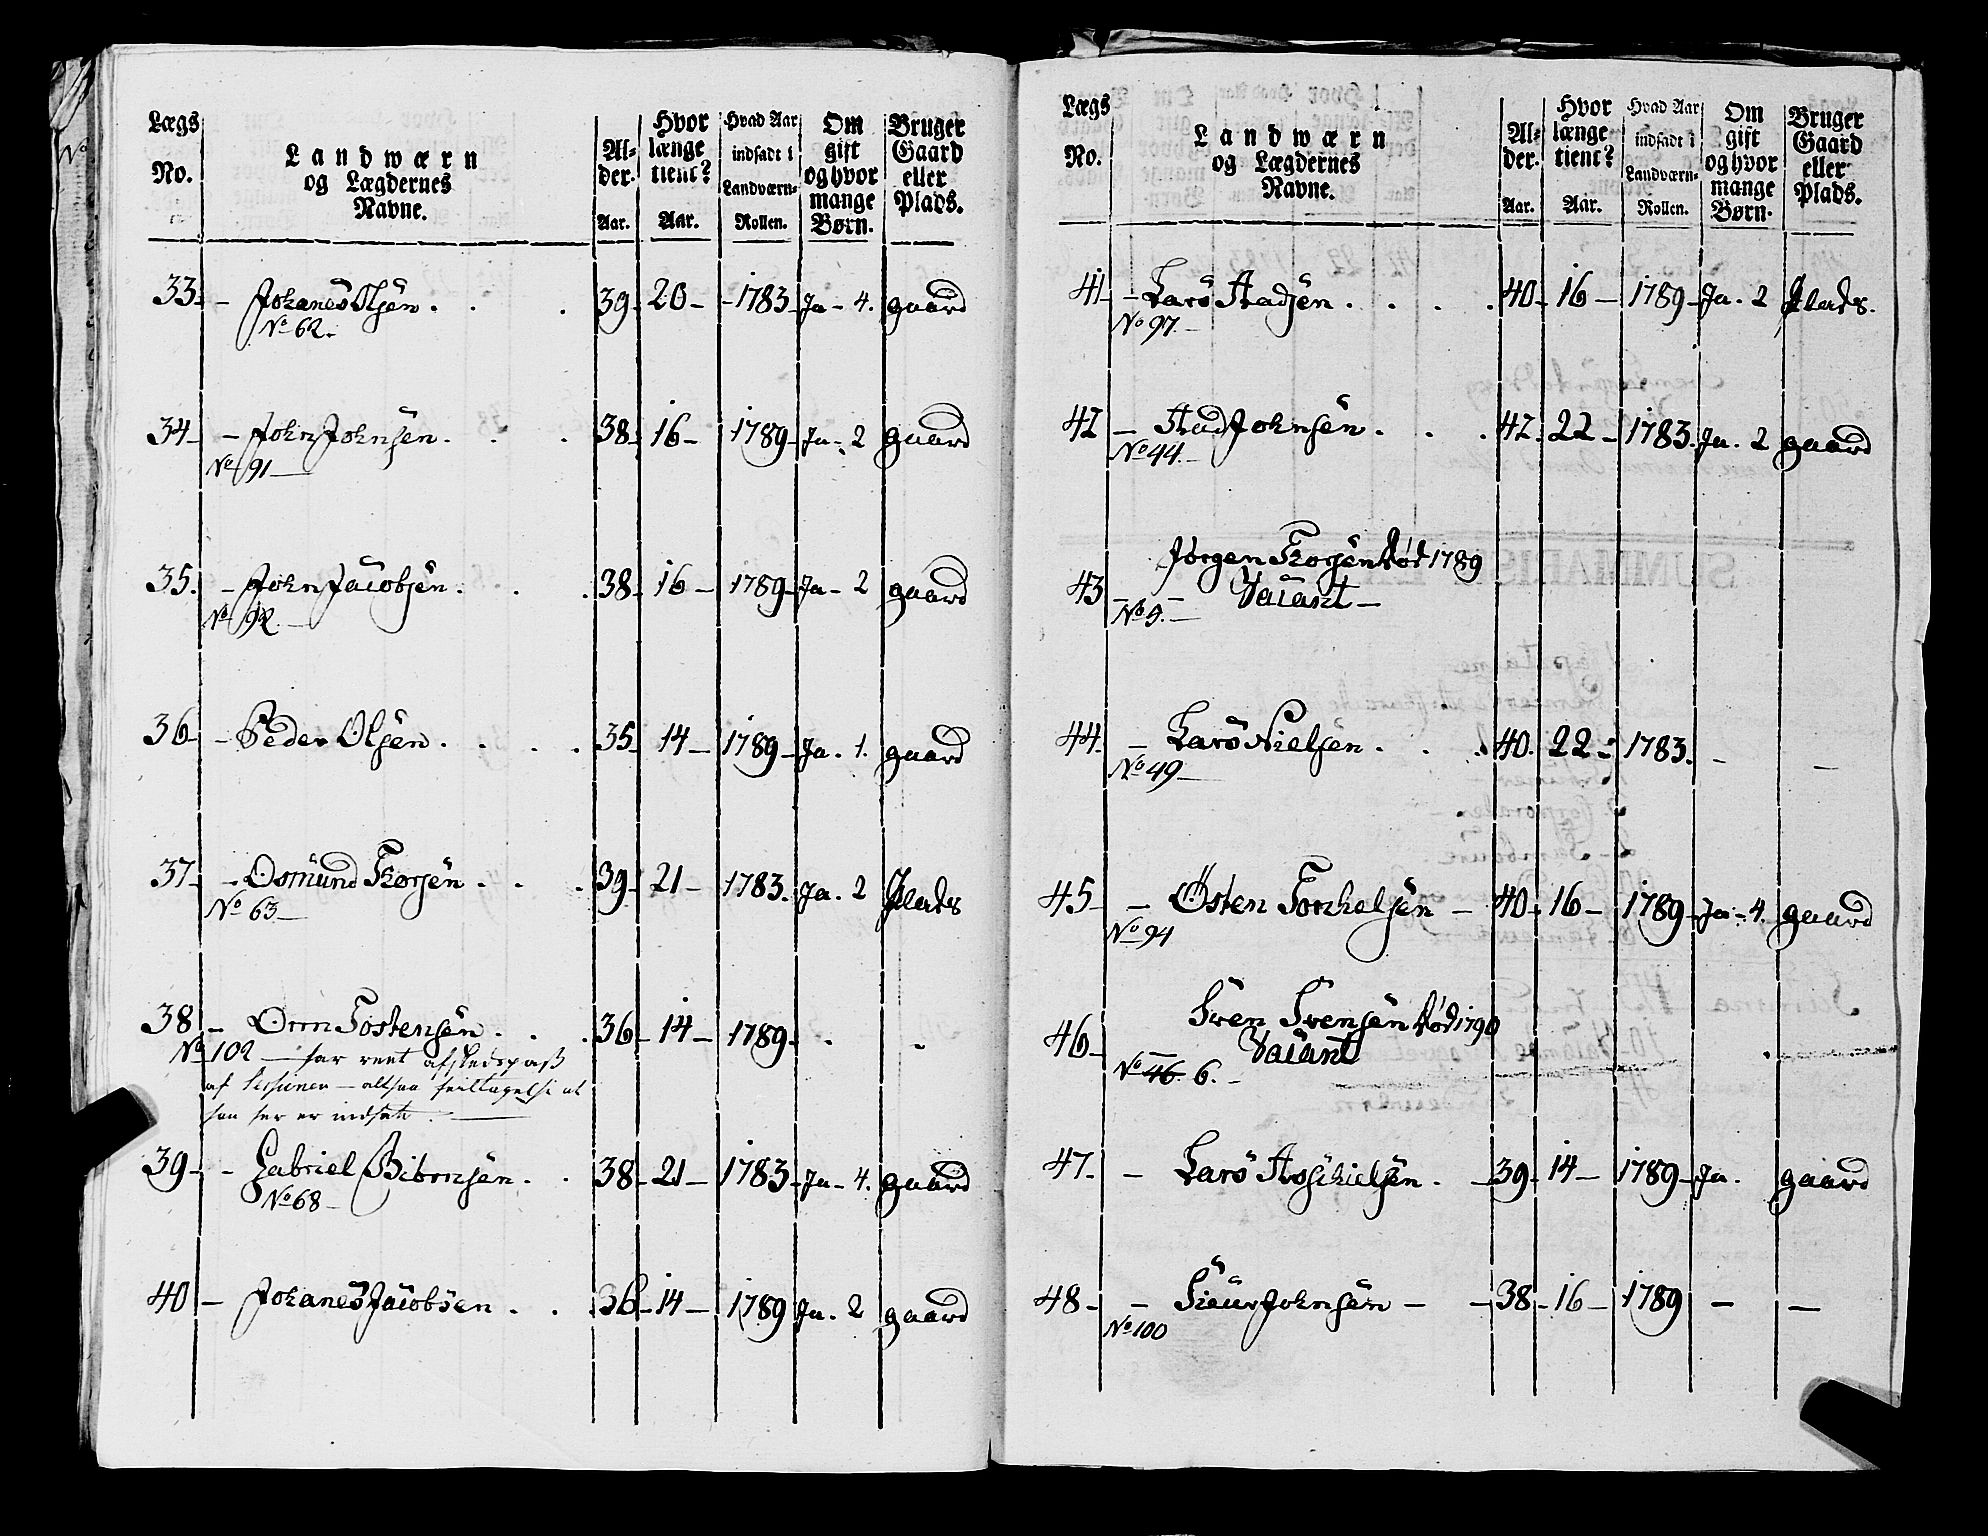 Lægs No. Landwærn og Lægdernes Navne. Al-der. Aar. Hvor længe tient? Aar. Hvad Aar indsadt i Landværn-Rollen. Om gift og hvor mange Børn. Bruger Gaard eller Plads.
33 - Johanes Olsen . . . 39 - 20 - 1783 - Ja - 4. gaard
No 62.
34 - John Johnsen . . . 38 - 16 - 1789 - Ja - 2 gaard
No 91
35. - John Jacobsen . . . 38 - 16 - 1789 - Ja - 2 gaard
No 92.
36 - Peder Olsen . . . . 35 - 14 - 1789 - Ja . 1. gaard
37 - Osmund Torsen . . . 39 - 21 - 1783. Ja . 2 Plads
No 63
38 - Orm Tostensen . . . 36 - 14 - 1789 - . .
No 102 - har reent afskedspass
af Sessionen - altsaa feiltagelse at
han her er indsat.
39 - - Gabriel Biörnsen . . 38 - 21 - 1783 - Ja - 4. gaard
No 68 -
40 - Johanes Jacobsen . . 36 - 14 - 1789 Ja . 2 gaard
Lægs No. Landwærn og Lægdernes Navne. Al-der. Aar. Hvor længe tient? Aar. Hvad Aar indsadt i Landværn-Rollen. Om gift og hvor mange Børn. Bruger Gaard eller Plads.
41 - Lars Aadsen . . . . 40 - 16 - 1789 - Ja . 2 Plads.
No 97. -
42 - Aad Johnsen . . . 42. 22 - 1783. Ja . 2 gaard
No 44. -
Jörgen Torsen död 1789
43 - - Vacant -
No 5. -
44. - Lars Nielsen . . . 40. 22 - 1783. - -
No 49 -
45 - - Östen Torkelsen - 40 - 16 - 1789 - Ja - 4. gaard
No 94
Sven Svensen död 1790
46 - - Vacant
No 46. 6. -
47. - Lars Aschielsen . - 39 - 14 - 1789 - Ja . gaard
48 - - Sieur Johnsen - - 38 - 16 - 1789 - -
No 100